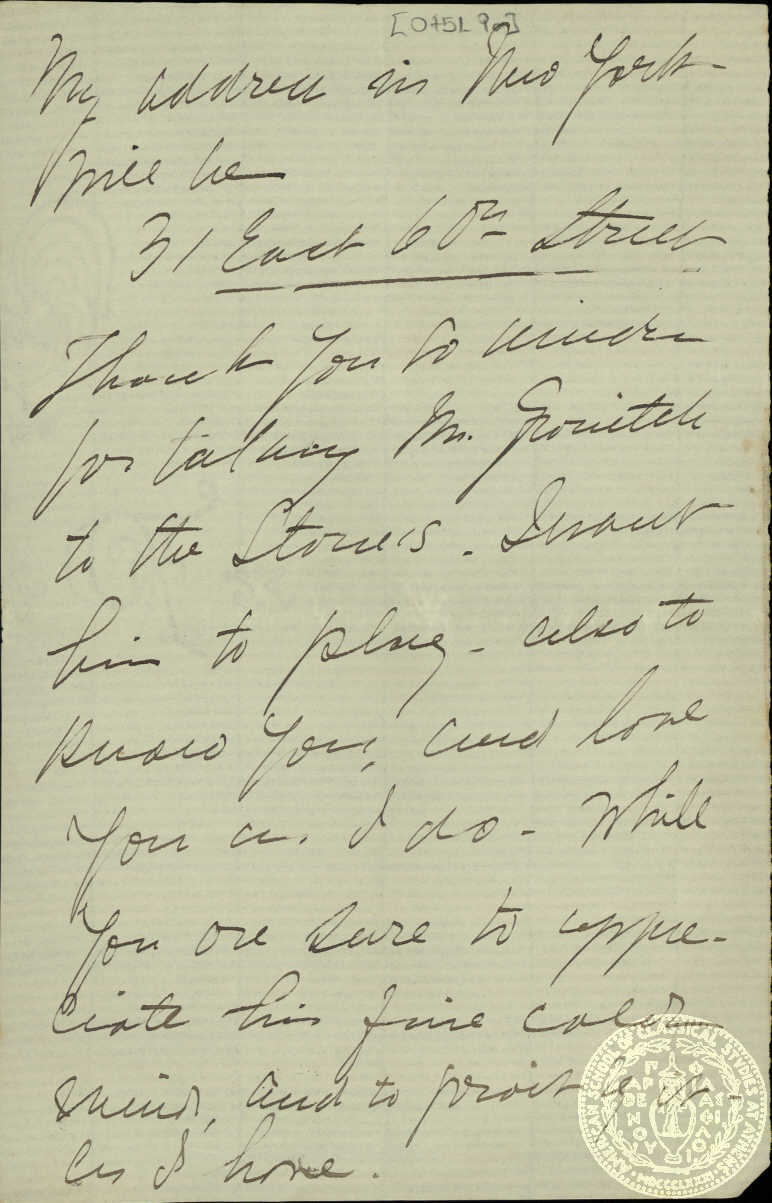 [0451 92]
My address in New York
will be
31 East 60th Street
Thank you so much
for taking Mr. Grouitch
to the Stone's. I want
him to play - also to
know you, and love
you as I do - While
you are sure to appre-
ciate his fine calm
mind, and to profit by it -
as I have.
AMERICAN SCHOOL OF CLASSICAL STUDIES AT ATHENS
ΠΑΡΘΕΝΟΥ
MDCCCLXXXI